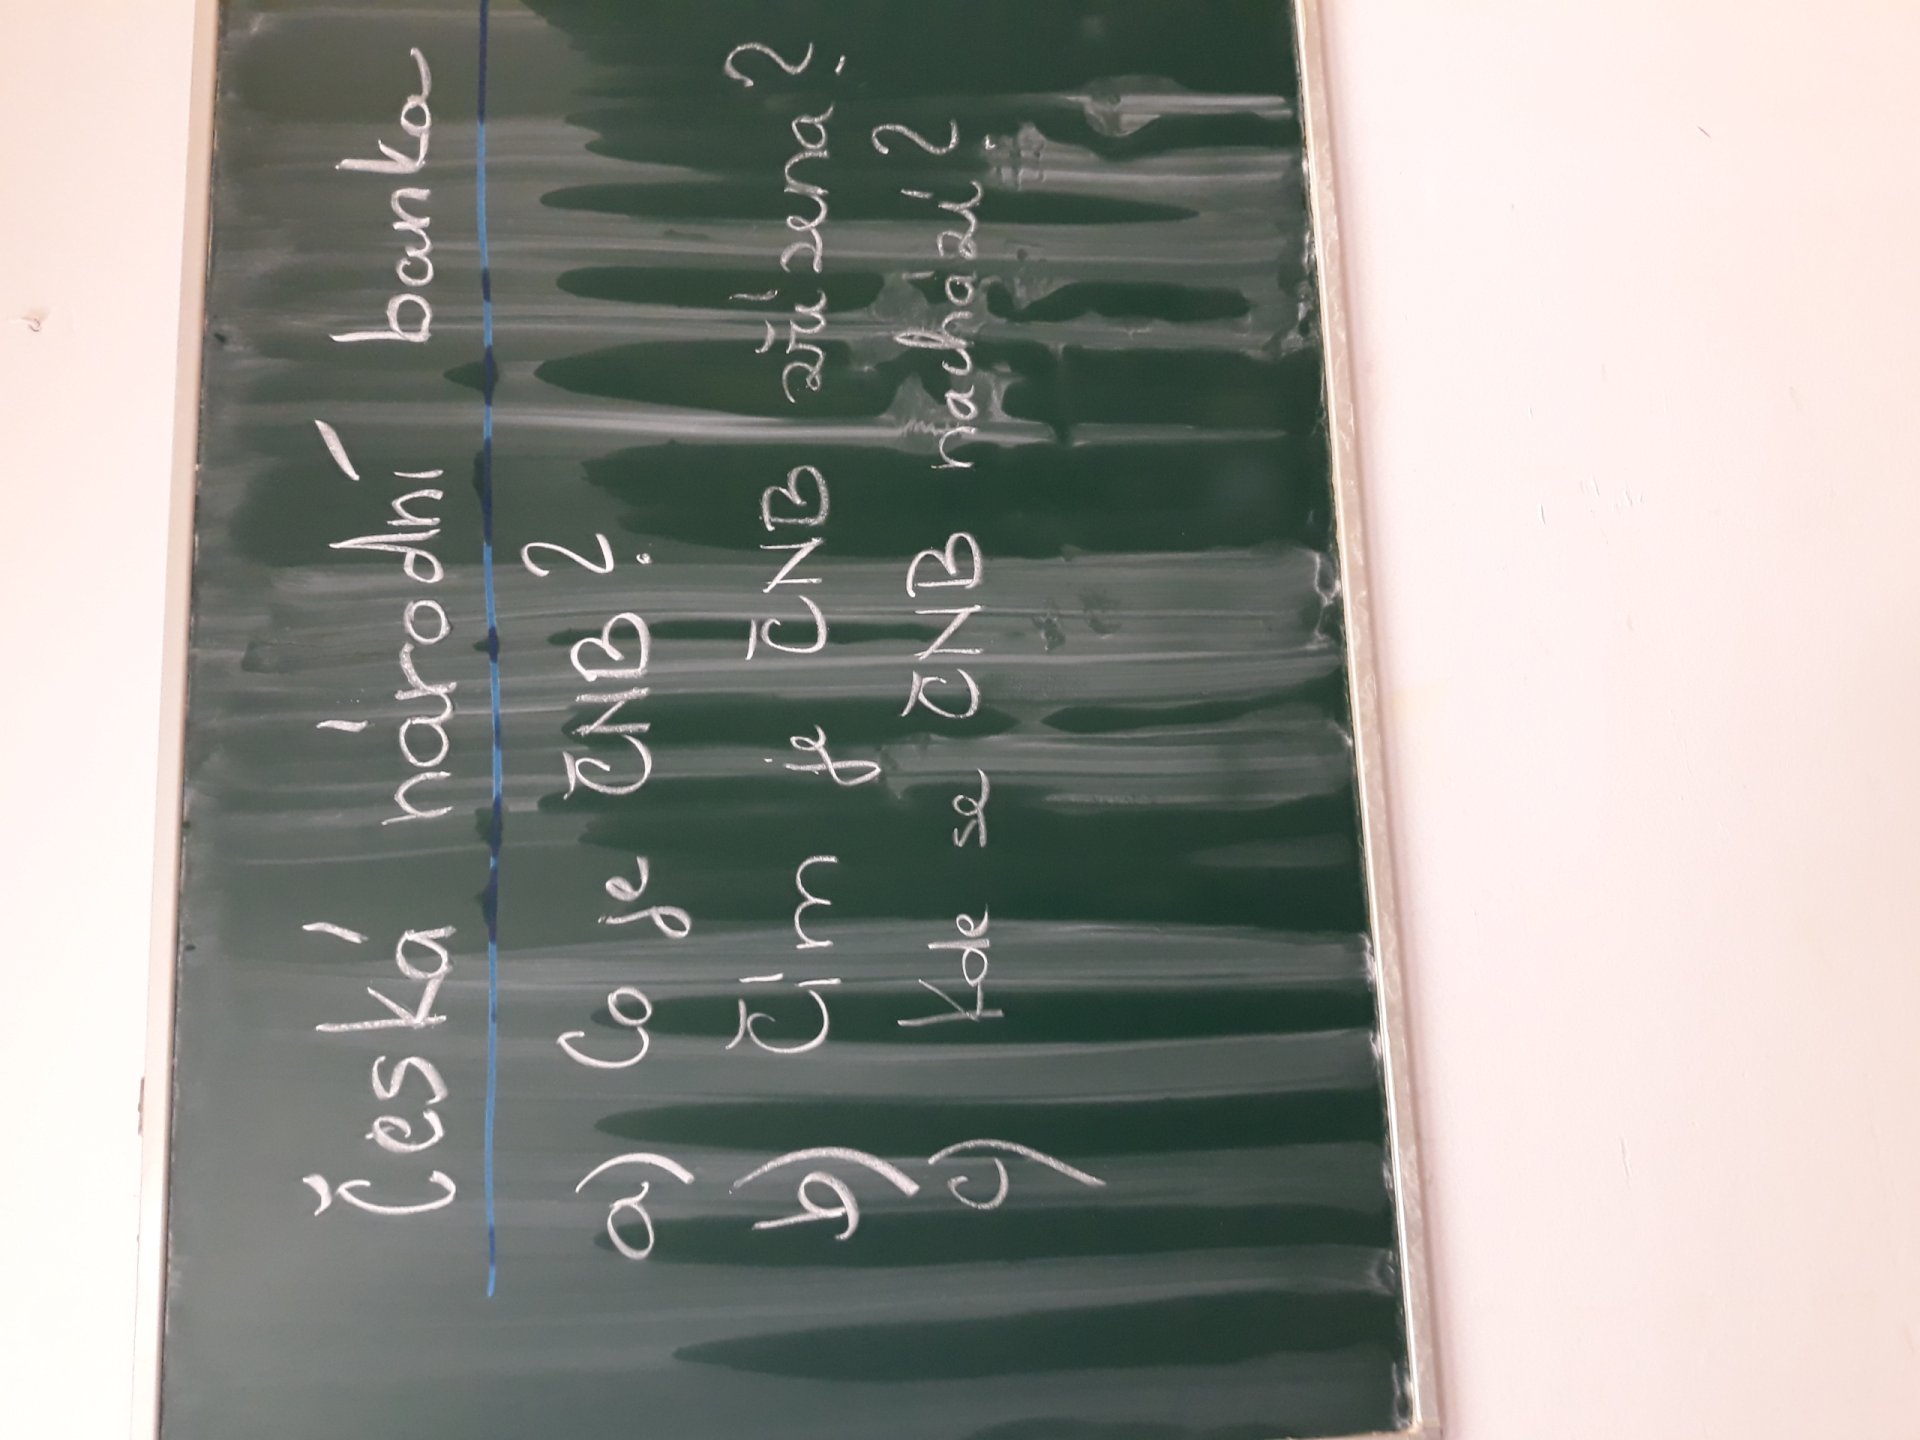 Česká národní banka
a) Co je ČNB?
b) Čím je ČNB zřízena?
c) Kde se ČNB nachází?